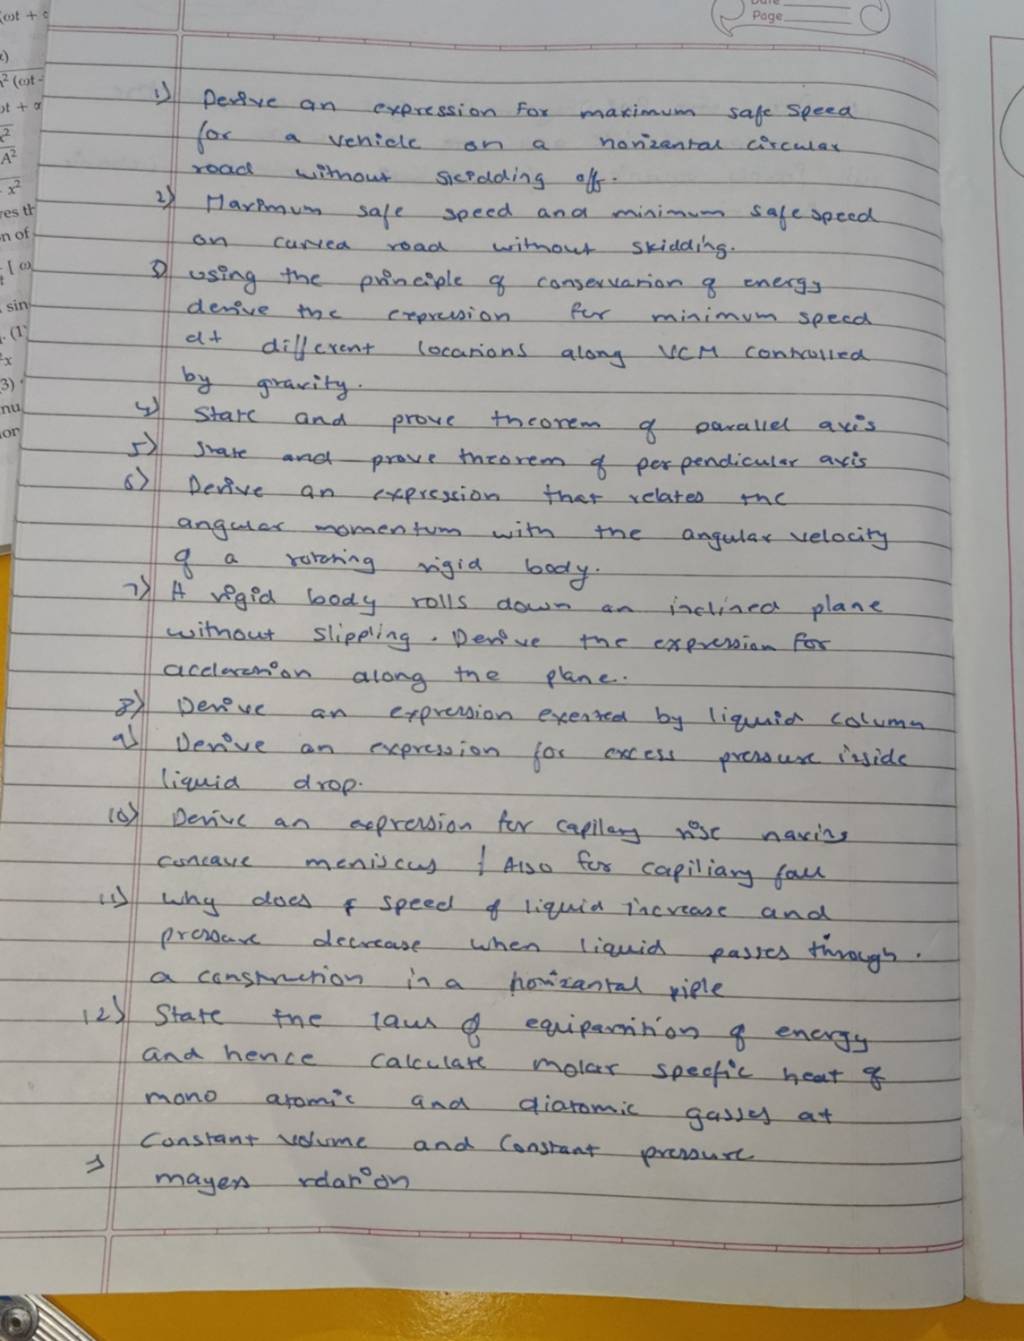 (ωt +
Date
Page
² (ωt -
ot +
A²
x²
res th
n of
sin
nu
1) Derive an expression For maximum safe speed
for a vehicle on a horizantal circular
road without skidding off.
2) Maximum safe speed and minimum safe speed
on curved road without skidding.
3) using the principle of conservation of energy
derive the expression for minimum speed
at different locations along VCM controlled
by gravity.
4) State and prove theorem of parallel axis
5) State and prove theorem of perpendicular axis
6) Derive an expression that relates the
angular momentum with the angular velocity
of a rotating rigid body.
7) A rigid body rolls down an inclined plane
without slippling. Derive the expression for
accleration along the plane.
8) Derive an expression exerted by liquid column
9) Derive an expression for excess pressure inside
liquid drop.
10) Derive an expression for capilary rise having
concave meniscus / Also for capiliary fall
11) why does speed of liquid increase and
pressure decrease when liquid passes through.
a constriction in a horizantal piple
12) State the law of equipartition of energy
and hence calculate molar specfic heat of
mono atomic and diatomic gasses at
constant volume and constant pressure
⇒ mayers relation